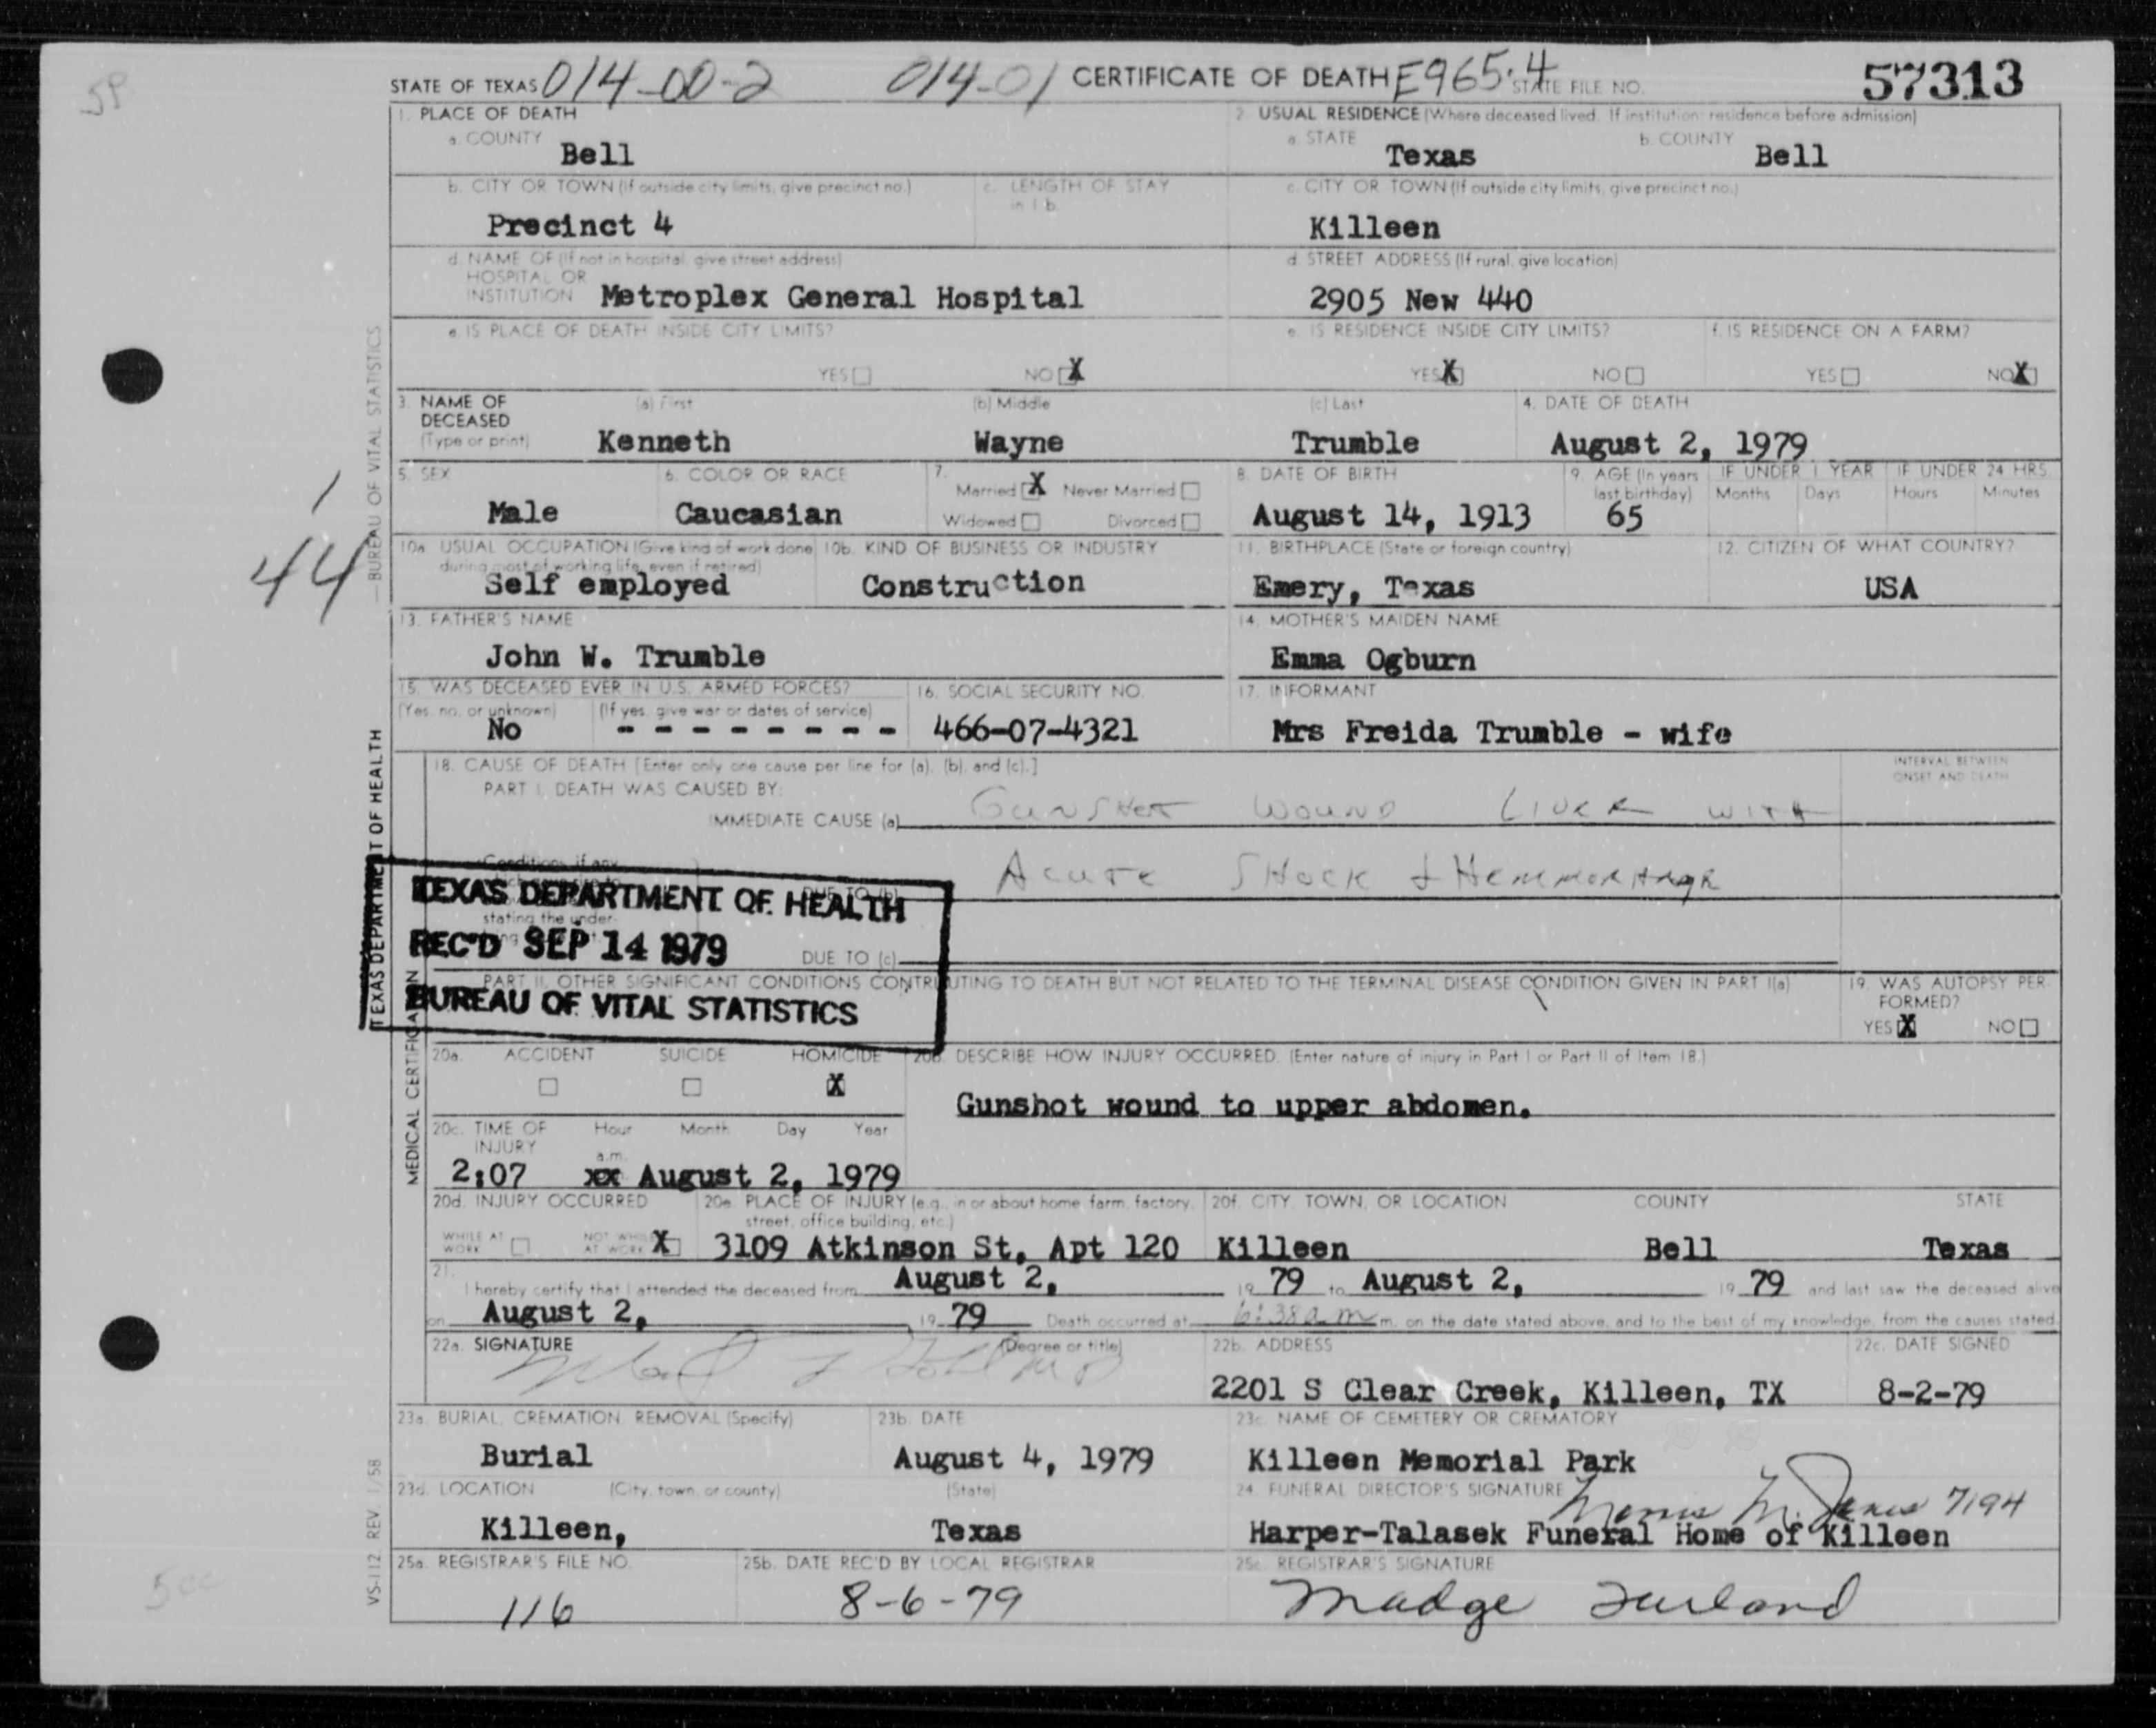 STATE OF TEXAS 014-00-2 014-01 CERTIFICATE OF DEATH E965.4 STATE FILE NO. 57313
1. PLACE OF DEATH
a. COUNTY Bell
2. USUAL RESIDENCE (Where deceased lived. If institution: residence before admission)
a. STATE Texas b. COUNTY Bell
b. CITY OR TOWN (If outside city limits, give precinct no.) Precinct 4
c. LENGTH OF STAY in 1 b.
c. CITY OR TOWN (If outside city limits, give precinct no.) Killeen
d. NAME OF (If not in hospital, give street address) HOSPITAL OR INSTITUTION Metroplex General Hospital
d. STREET ADDRESS (If rural, give location) 2905 New 440
e. IS PLACE OF DEATH INSIDE CITY LIMITS? YES NO X
e. IS RESIDENCE INSIDE CITY LIMITS? YES X NO
f. IS RESIDENCE ON A FARM? YES NO X
3. NAME OF DECEASED (Type or print) (a) First Kenneth (b) Middle Wayne (c) Last Trumble
4. DATE OF DEATH August 2, 1979
5. SEX Male
6. COLOR OR RACE Caucasian
7. Married X Never Married Widowed Divorced
8. DATE OF BIRTH August 14, 1913
9. AGE (In years last birthday) 65 IF UNDER 1 YEAR Months Days IF UNDER 24 HRS. Hours Minutes
10a. USUAL OCCUPATION (Give kind of work done during most of working life, even if retired) Self employed
10b. KIND OF BUSINESS OR INDUSTRY Construction
11. BIRTHPLACE (State or foreign country) Emery, Texas
12. CITIZEN OF WHAT COUNTRY? USA
13. FATHER'S NAME John W. Trumble
14. MOTHER'S MAIDEN NAME Emma Ogburn
15. WAS DECEASED EVER IN U.S. ARMED FORCES? (Yes, no, or unknown) No (If yes, give war or dates of service) - - - - - - - - -
16. SOCIAL SECURITY NO. 466-07-4321
17. INFORMANT Mrs Freida Trumble - wife
18. CAUSE OF DEATH [Enter only one cause per line for (a), (b), and (c).]
INTERVAL BETWEEN ONSET AND DEATH
PART I. DEATH WAS CAUSED BY:
IMMEDIATE CAUSE (a) Gunshot Wound Liver with
Conditions, if any, DUE TO (b) Acute Shock & Hemmorhage
stating the under-
DUE TO (c)
TEXAS DEPARTMENT OF HEALTH
REC'D SEP 14 1979
BUREAU OF VITAL STATISTICS
PART II. OTHER SIGNIFICANT CONDITIONS CONTRIBUTING TO DEATH BUT NOT RELATED TO THE TERMINAL DISEASE CONDITION GIVEN IN PART I(a)
19. WAS AUTOPSY PERFORMED? YES X NO
20a. ACCIDENT SUICIDE HOMICIDE X
20b. DESCRIBE HOW INJURY OCCURRED. (Enter nature of injury in Part I or Part II of Item 18.)
Gunshot wound to upper abdomen.
20c. TIME OF INJURY Hour Month Day Year
2:07 a.m. xx August 2, 1979
20d. INJURY OCCURRED WHILE AT WORK NOT WHILE AT WORK X
20e. PLACE OF INJURY (e.g., in or about home, farm, factory, street, office building, etc.) 3109 Atkinson St. Apt 120
20f. CITY, TOWN, OR LOCATION Killeen COUNTY Bell STATE Texas
21. I hereby certify that I attended the deceased from August 2, 19 79 to August 2, 19 79 and last saw the deceased alive
on August 2, 19 79 Death occurred at 6:38 a.m m. on the date stated above, and to the best of my knowledge, from the causes stated.
22a. SIGNATURE (Degree or title)
22b. ADDRESS 2201 S Clear Creek, Killeen, TX
22c. DATE SIGNED 8-2-79
23a. BURIAL, CREMATION, REMOVAL (Specify) Burial
23b. DATE August 4, 1979
23c. NAME OF CEMETERY OR CREMATORY Killeen Memorial Park
23d. LOCATION (City, town, or county) Killeen, (State) Texas
24. FUNERAL DIRECTOR'S SIGNATURE 7194
Harper-Talasek Funeral Home of Killeen
25a. REGISTRAR'S FILE NO. 116
25b. DATE REC'D BY LOCAL REGISTRAR 8-6-79
25c. REGISTRAR'S SIGNATURE Madge
TEXAS DEPARTMENT OF HEALTH — BUREAU OF VITAL STATISTICS
MEDICAL CERTIFICATION
VS-112 REV. 1/58
44